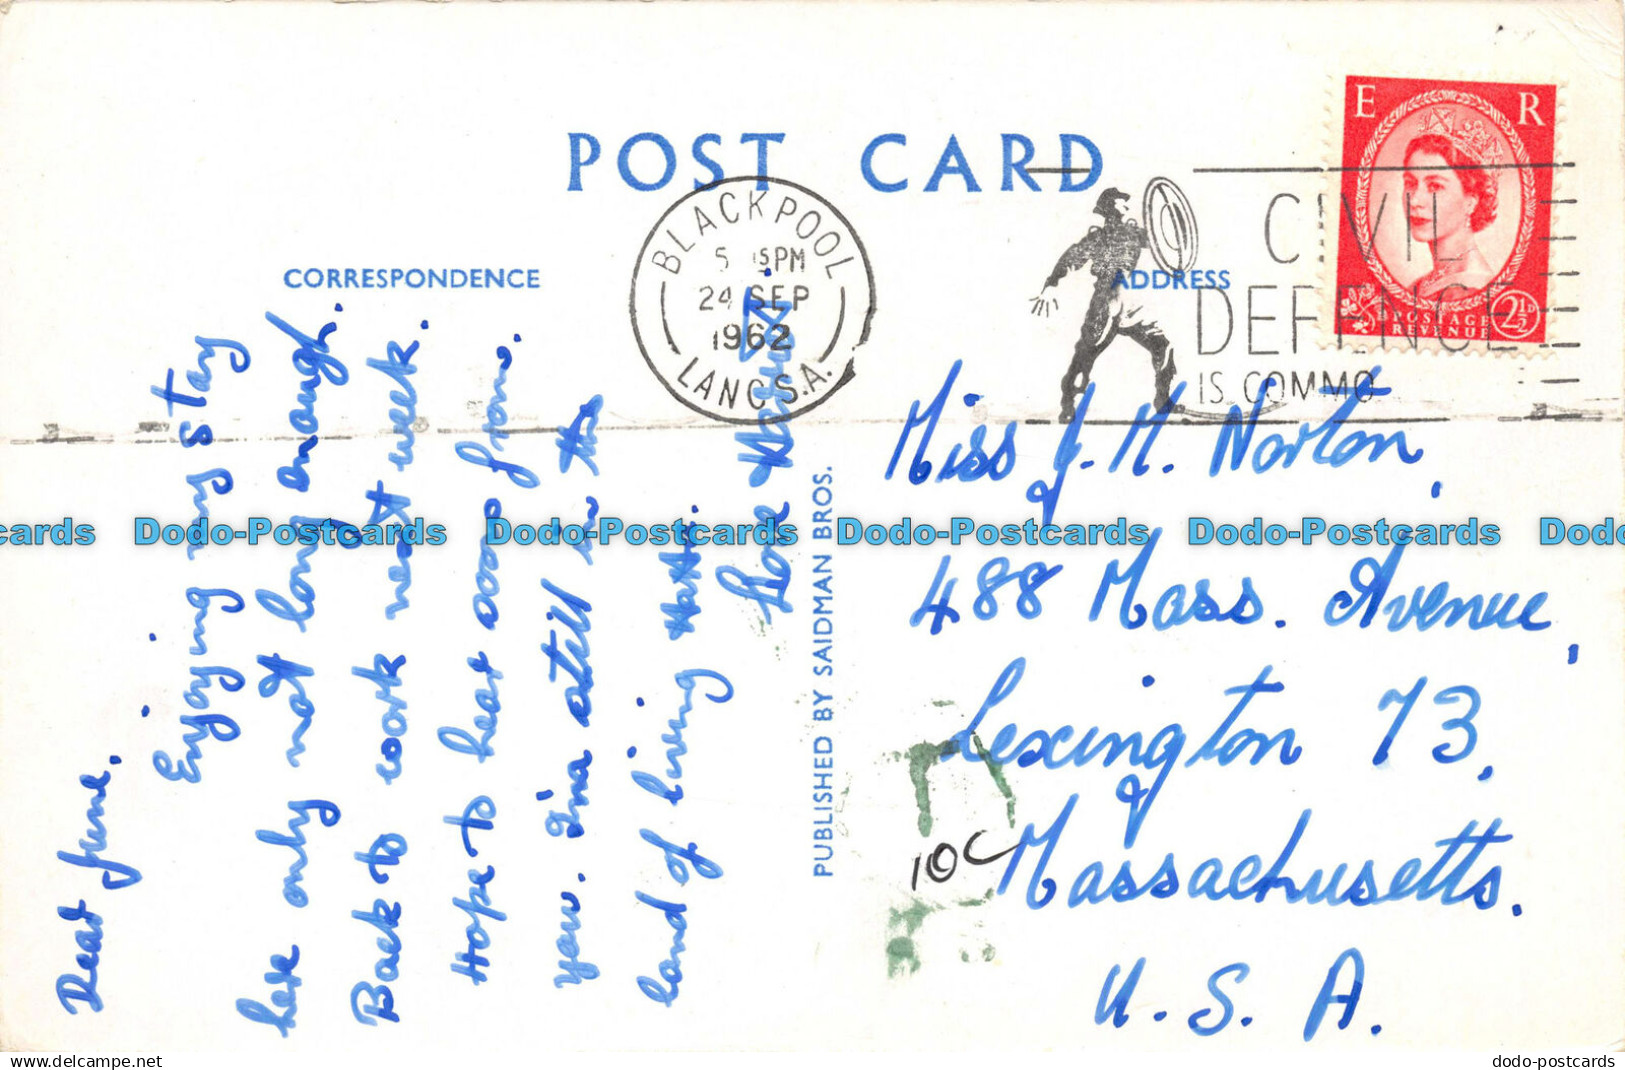 POST CARD
CORRESPONDENCE
ADDRESS
BLACKPOOL
5 15 PM
24 SEP
1962
LANCS.A.
CIVIL
DEFENCE
IS COMMO
E R
POSTAGE
REVENUE
2½D
Dear June.
Enjoying my stay
here only not long enough.
Back to work next week.
Hope to hear soon from
you. I'm still in the
land of living
Love
PUBLISHED BY SAIDMAN BROS.
Miss J. M. Norton,
488 Mass. Avenue,
Lexington 73,
Massachusetts.
U. S. A.
10c
Dodo-Postcards Dodo-Postcards Dodo-Postcards Dodo-Postcards Dodo-Postcards
www.delcampe.net
dodo-postcards